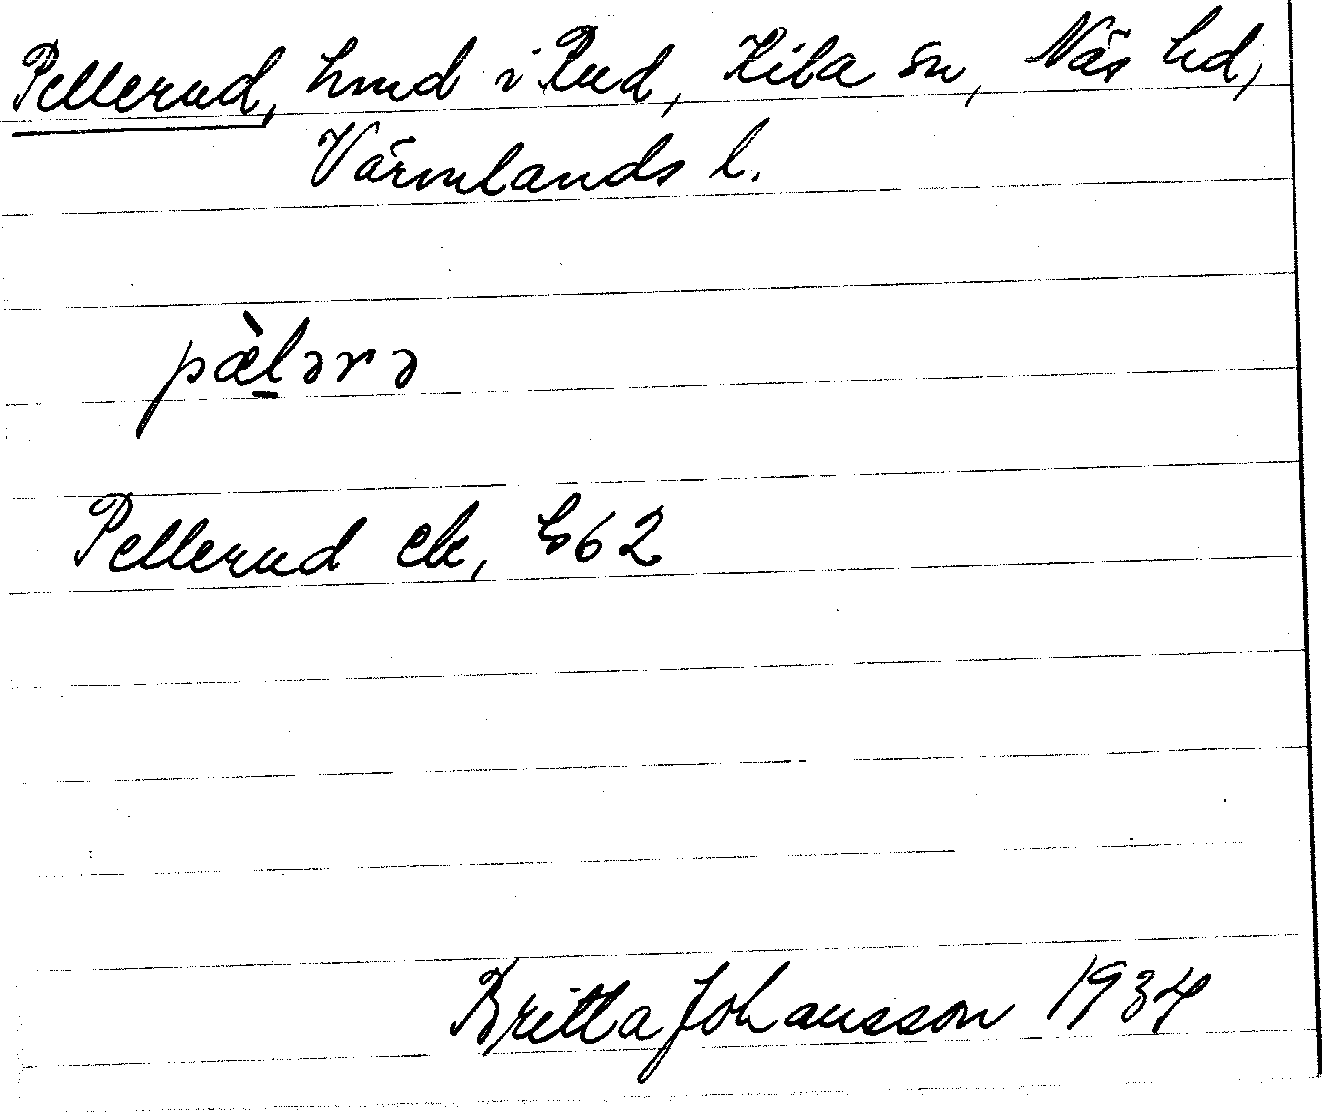 Pellerud, hmd i Rud, Kila sn, Näs hd,
Värmlands l.
pæ̀l̠ərə
Pellerud ek, b62
Britta Johansson 1934